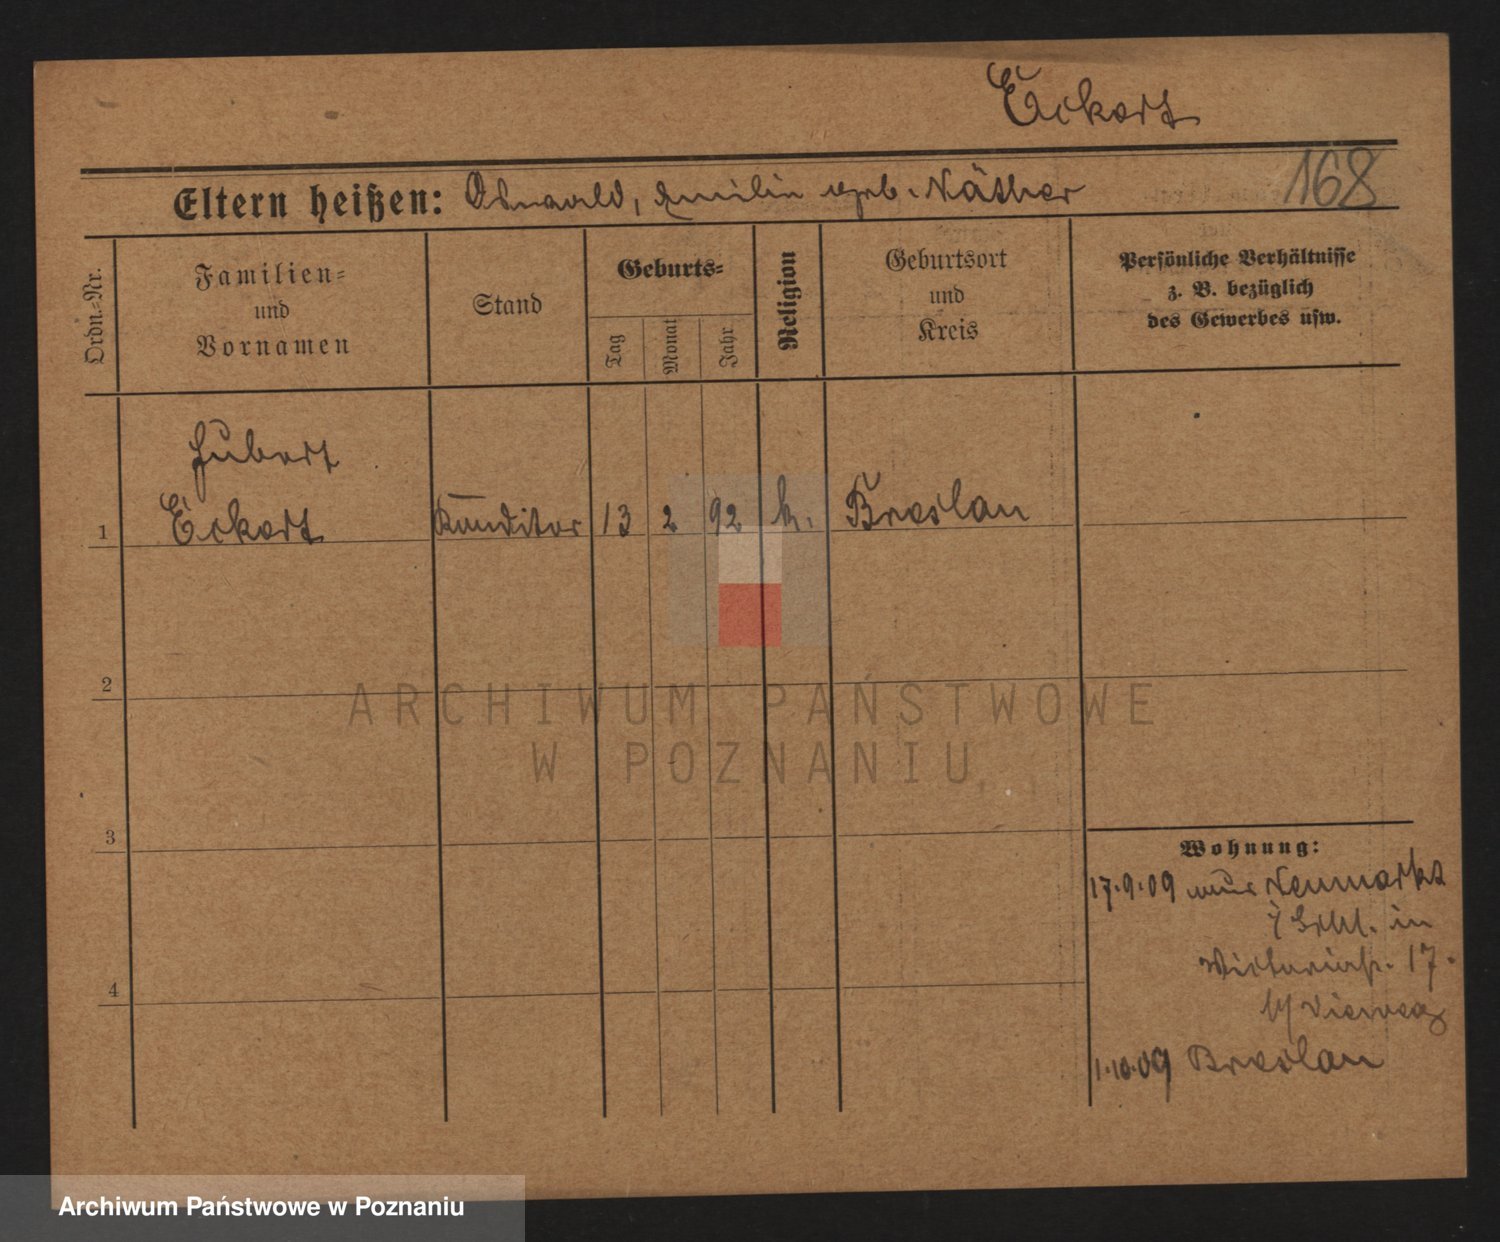 Eckert
168
Eltern heißen: Oswald, Emilie geb. Näther
Ordn.-Nr.
Familien-
und
Vornamen
Stand
Geburts-
Tag
Monat
Jahr
Religion
Geburtsort
und
Kreis
Persönliche Verhältnisse
z. B. bezüglich
des Gewerbes usw.
Hubert
1 Eckert Konditor 13 2 92 k. Breslau
2
3
4
Wohnung:
17.9.09 aus Neumarkt
i/Schl. in
Victoriastr. 17.
b/ Vieweg
1.10.09 Breslau
ARCHIWUM PAŃSTWOWE
W POZNANIU
Archiwum Państwowe w Poznaniu